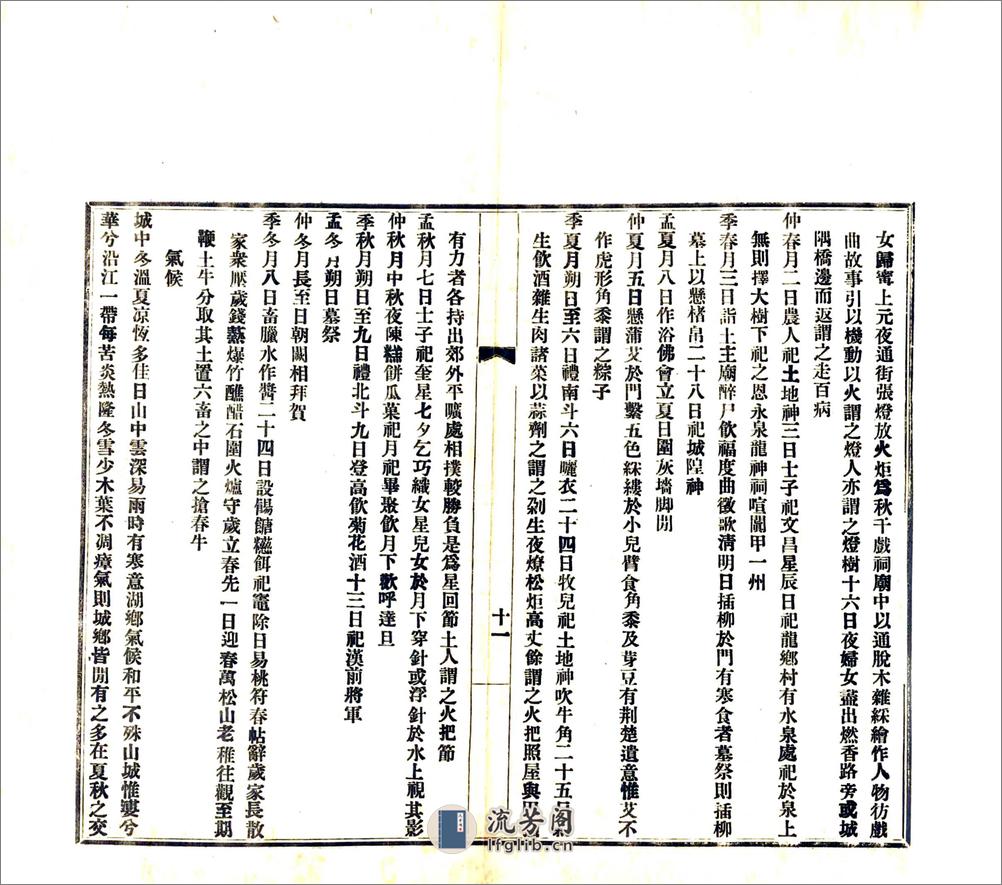 女歸寧上元夜通街張燈放火炬爲秋千戲祠廟中以通脫木雜綵繪作人物彷戲
曲故事引以機動以火謂之燈人亦謂之燈樹十六日夜婦女盡出燃香路旁或城
隅橋邊而返謂之走百病
仲春月二日農人祀土地神三日士子祀文昌星辰日祀龍鄉村有水泉處祀於泉上
無則擇大樹下祀之恩永泉龍神祠喧闐甲一州
季春月三日詣土主廟醉尸飮福度曲徵歌淸明日插柳於門有寒食者墓祭則插柳
墓上以懸楮帛二十八日祀城隍神
孟夏月八日作浴佛會立夏日圍灰墻脚閒
仲夏月五日懸蒲艾於門繫五色綵縷於小兒臂食角黍及芽豆有荆楚遺意惟艾不
作虎形角黍謂之粽子
季夏月朔日至六日禮南斗六日曬衣二十四日牧兒祀土地神吹牛角二十五日
生飮酒雜生肉諸菜以蒜劑之謂之剁生夜燎松炬高丈餘謂之火把照屋與田
十一
有力者各持出郊外平曠處相撲較勝負是爲星回節土人謂之火把節
孟秋月七日士子祀奎星七夕乞巧織女星兒女於月下穿針或浮針於水上視其影
仲秋月中秋夜陳糕餅瓜菓祀月祀畢聚飮月下歡呼達旦
季秋月朔日至九日禮北斗九日登高飮菊花酒十三日祀漢前將軍
孟冬月朔日墓祭
仲冬月長至日朝闕相拜賀
季冬月八日畜臘水作醬二十四日設餳餹糍餌祀竈除日易桃符春帖辭歲家長散
家衆厭歲錢爇爆竹醮醋石圍火爐守歲立春先一日迎春萬松山老稚往觀至期
鞭土牛分取其土置六畜之中謂之搶春牛
氣候
城中冬溫夏凉恆多佳日山中雲深易雨時有寒意湖鄉氣候和平不殊山城惟婁兮
華兮沿江一帶每苦炎熱隆冬雪少木葉不凋瘴氣則城鄉皆閒有之多在夏秋之交
流芳阁
lfglib.cn